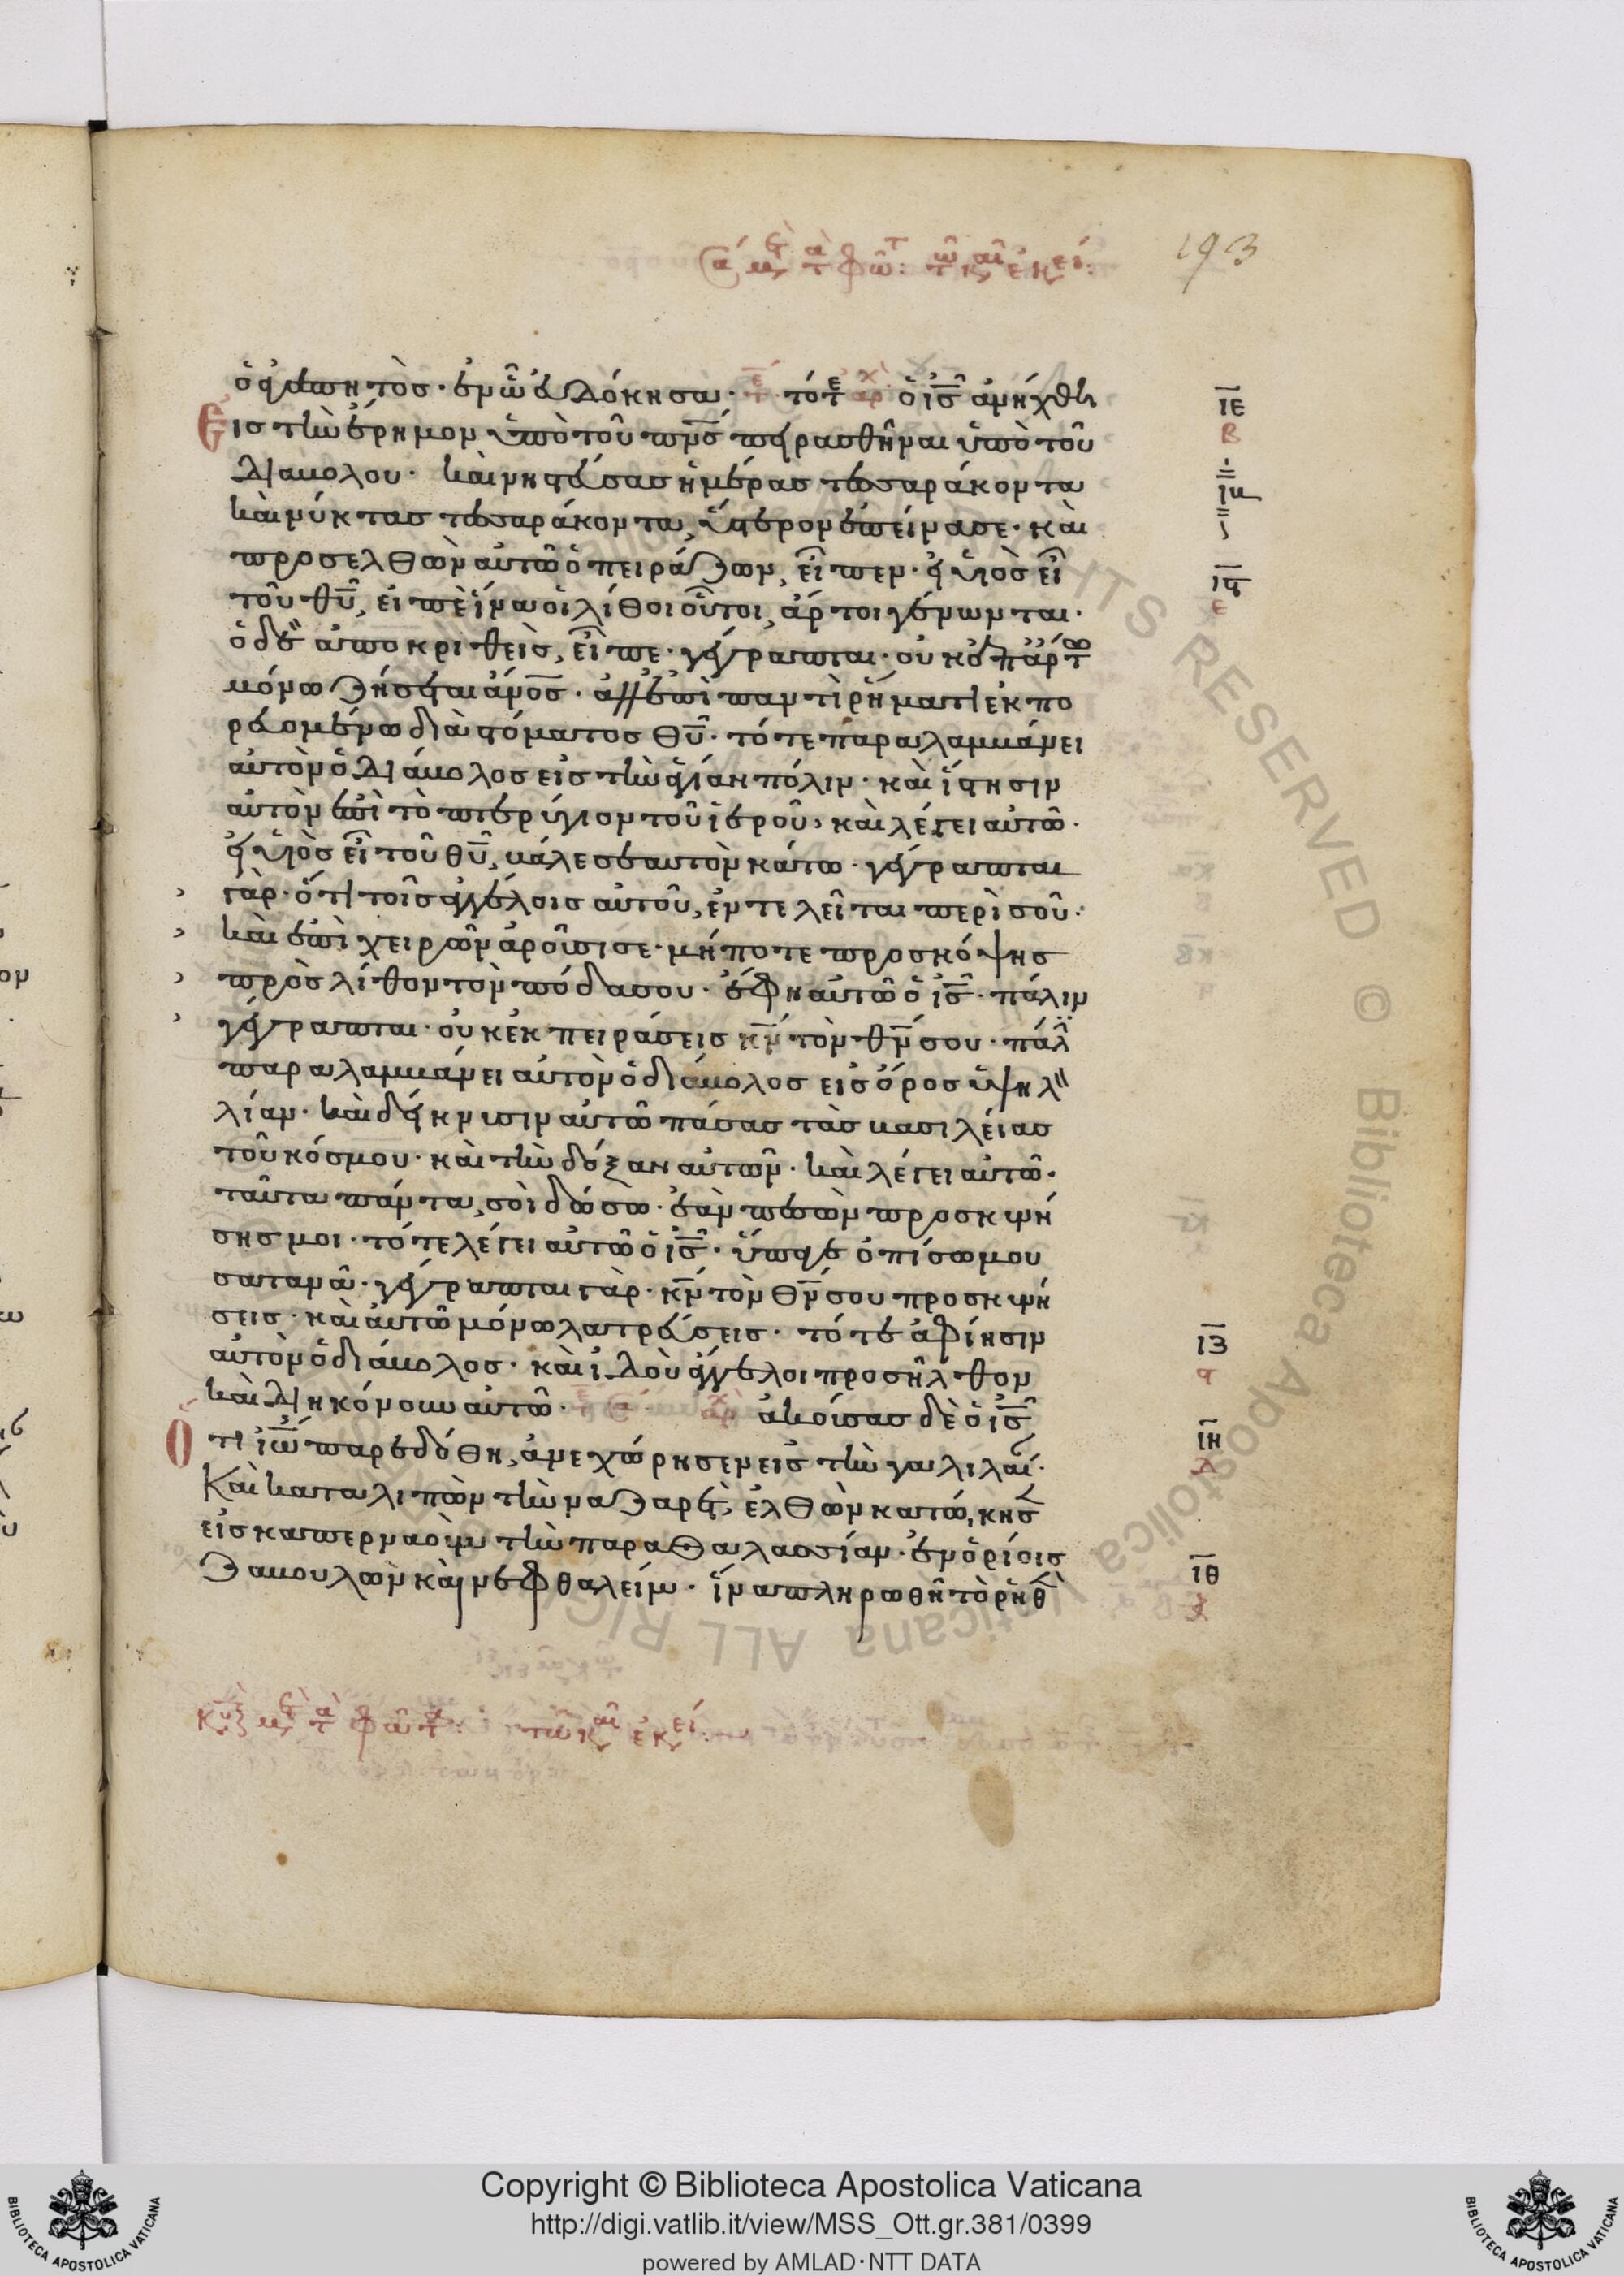 193
ὁ ἀγαπητὸς· ἐν ᾧ εὐδόκησα· τότε ὁ ις ἀνήχθη
Εἰς τὴν ἔρημον ὑπὸ τοῦ πνς πειρασθῆναι ὑπὸ τοῦ
διαβόλου· καὶ νηστεύσας ἡμέρας τεσσαράκοντα
καὶ νύκτας τεσσαράκοντα, ὕστερον ἐπείνασε· καὶ
προσελθὼν αὐτῶ ὁ πειράζων, εἶπεν· εἰ υἱὸς εἶ
τοῦ θυ, εἰπὲ ἵνα οἱ λίθοι οὗτοι, ἄρτοι γένωνται·
ὁ δὲ ἀποκριθεὶς, εἶπε· γέγραπται· οὐκ ἐπ' ἄρτω
μόνω ζήσεται ἄνος· ἀλλ' ἐπὶ παντὶ ῥήματι ἐκπο
ρευομένω διὰ στόματος θυ· τότε παραλαμβάνει
αὐτὸν ὁ διάβολος εἰς τὴν ἁγίαν πόλιν· καὶ ἵστησιν
αὐτὸν ἐπὶ τὸ πτερύγιον τοῦ ἱεροῦ, καὶ λέγει αὐτῶ·
εἰ υἱὸς εἶ τοῦ θυ, βάλε σεαυτὸν κάτω· γέγραπται
γὰρ· ὅτι τοῖς ἀγγέλοις αὐτοῦ, ἐντελεῖται περὶ σοῦ·
καὶ ἐπὶ χειρῶν ἀροῦσι σε· μήποτε προσκόψης
πρὸς λίθον τὸν πόδα σου· ἔφη αὐτῶ ὁ ις· πάλιν
γέγραπται· οὐκ ἐκπειράσεις κν τὸν θν σου· πάλ
παραλαμβάνει αὐτὸν ὁ διάβολος εἰς ὄρος ὑψηλ
λίαν· καὶ δείκνυσιν αὐτῶ πάσας τὰς βασιλείας
τοῦ κόσμου· καὶ τὴν δόξαν αὐτῶν· καὶ λέγει αὐτῶ·
ταῦτα πάντα, σοὶ δώσω· ἐὰν πεσὼν προσκυνή
σης μοι· τότε λέγει αὐτῶ ὁ ις· ὕπαγε ὀπίσω μου
σατανᾶ· γέγραπται γὰρ· κν τὸν θν σου προσκυνή
σεις· καὶ αὐτῶ μόνω λατρεύσεις· τότε ἀφίησιν
αὐτὸν ὁ διάβολος· καὶ ἰδοὺ ἄγγελοι προσῆλθον
καὶ διηκόνουν αὐτῶ· ἀκούσας δὲ ὁ ις
Ὅτι ιω παρεδόθη, ἀνεχώρησεν εἰς τὴν γαλιλαί·
Καὶ καταλιπὼν τὴν ναζαρέτ, ἐλθὼν κατώκησ
εἰς καπερναοὺμ τὴν παραθαλασσίαν· ἐν ὁρίοις
ζαβουλὼν καὶ νεφθαλείμ· ἵνα πληρωθῆ τὸ ῥηθ
ΙΕ
Β
Ις
ΙΖ
ΙΗ
ΙΘ
Copyright © Biblioteca Apostolica Vaticana
http://digi.vatlib.it/view/MSS_Ott.gr.381/0399
powered by AMLAD·NTT DATA
BIBLIOTECA APOSTOLICA VATICANA
BIBLIOTECA APOSTOLICA VATICANA